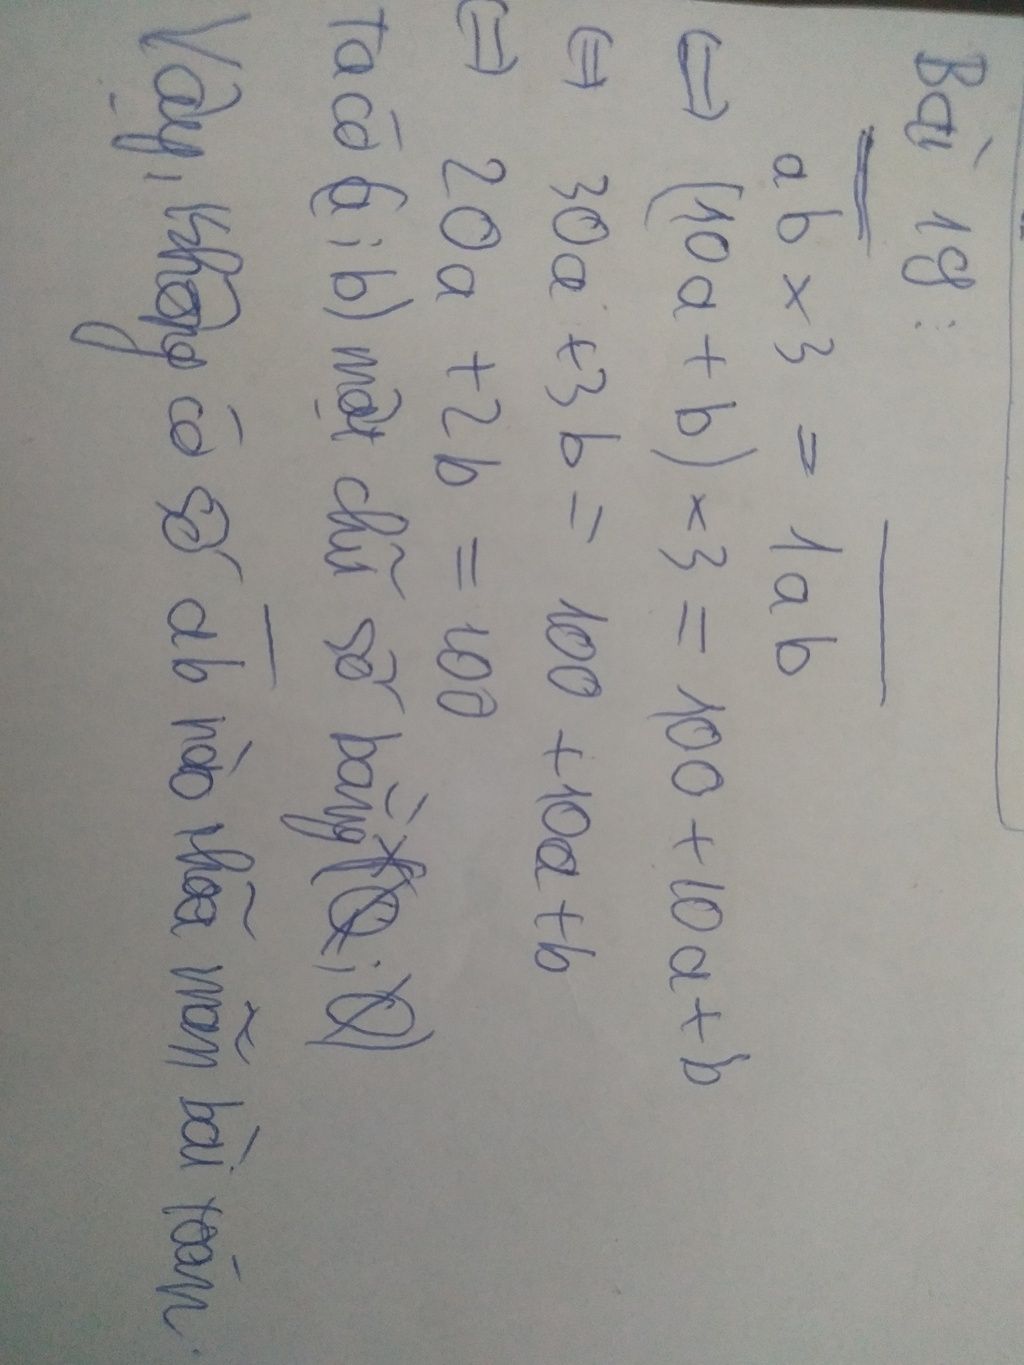 Bài 19:
ab x 3 = 1ab
⇔ (10a + b) x 3 = 100 + 10a + b
⇔ 30a + 3b = 100 + 10a + b
⇔ 20a + 2b = 100
Ta có (a; b) một chữ số bằng
Vậy, không có số ab nào thoã mãn bài toán.